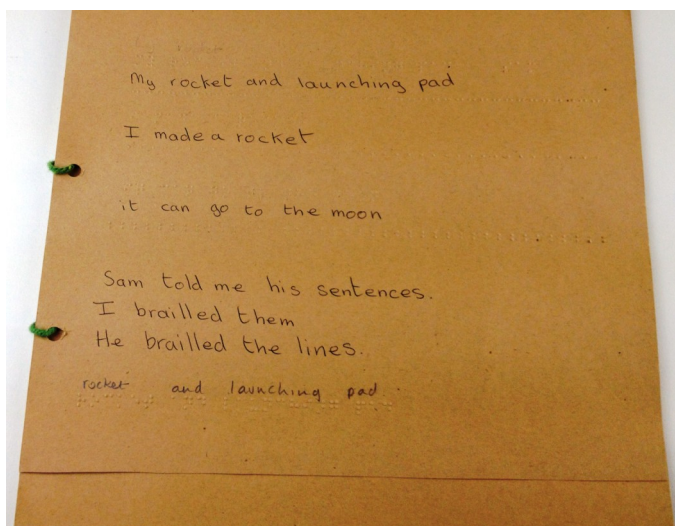 My rocket and launching pad
I made a rocket
it can go to the moon
Sam told me his sentences.
I brailled them
He brailled the lines.
rocket and launching pad